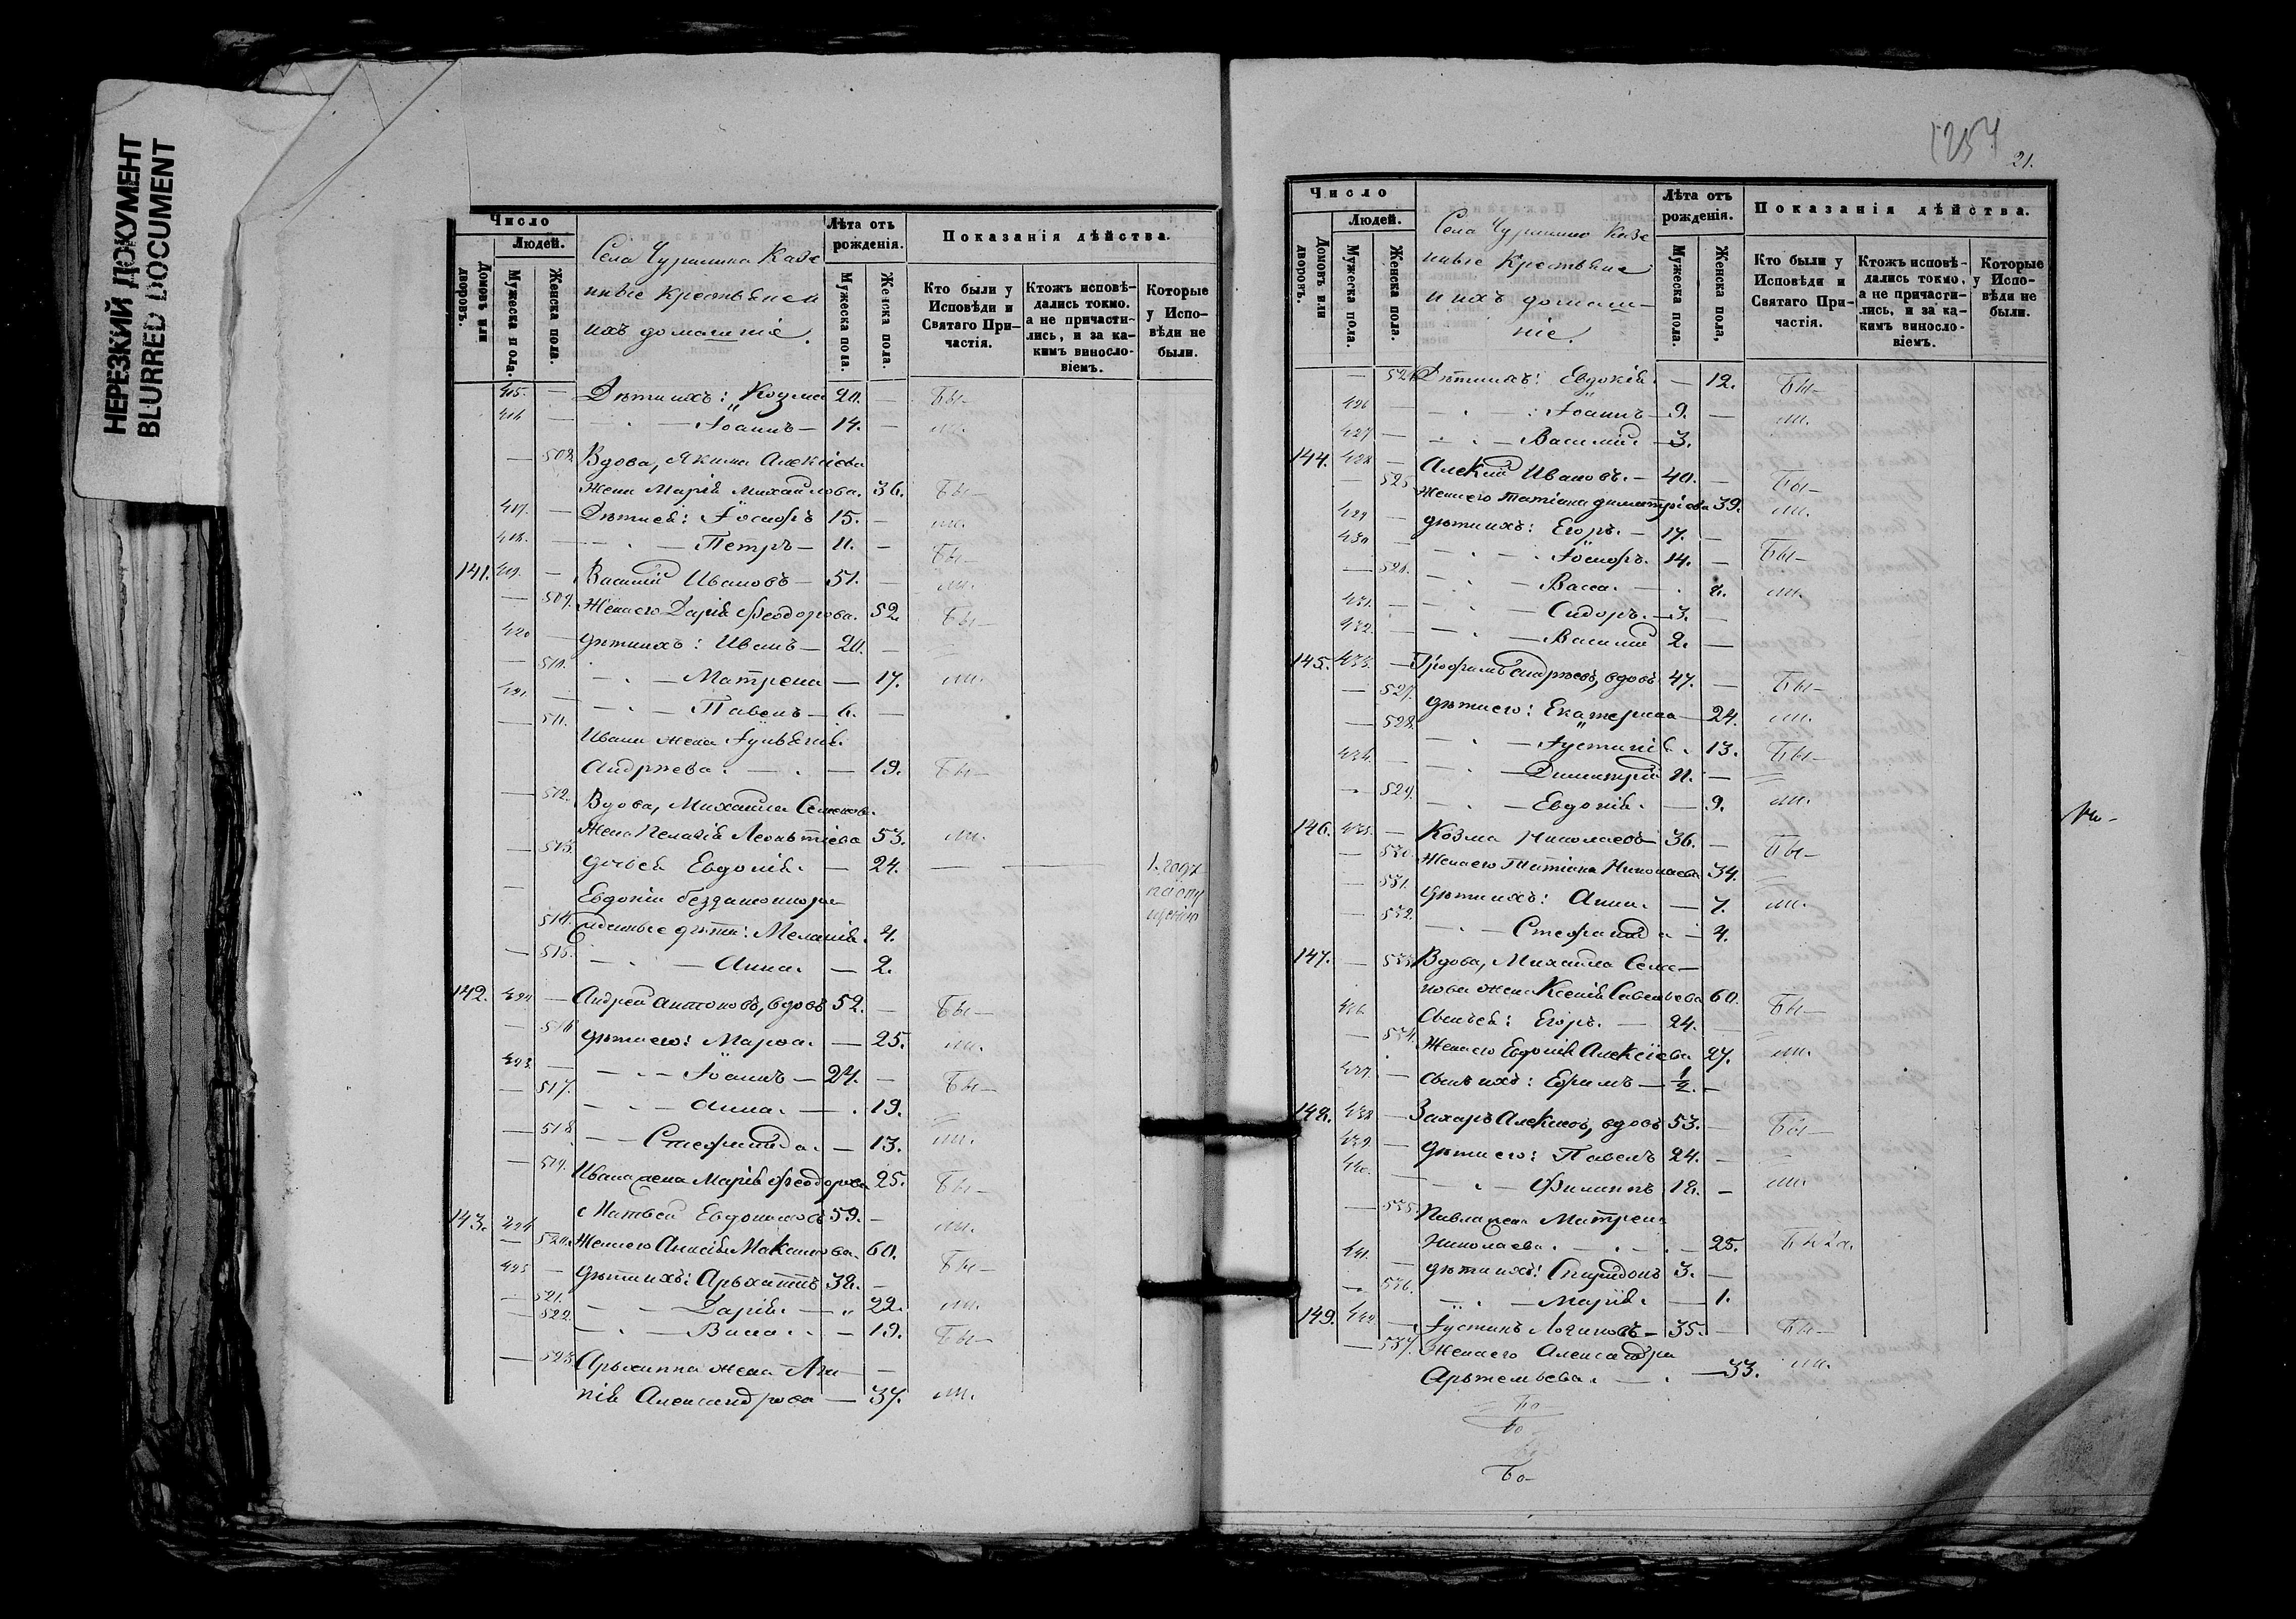 НЕРЕЗКИЙ ДОКУМЕНТ
BLURRED DOCUMENT
Число
Людей.
Домовъ или дворовъ.
Мужеска пола.
Женска пола.
Села Чуринина Казе
нные Крестьяне и
ихъ домашніе.
Лѣта отъ рожденія.
Мужеска пола.
Женска пола.
Показанія дѣйства.
Кто были у Исповѣди и Святаго Причастія.
Ктожъ исповѣ-дались токмо, а не причасти-лись, и за ка-кимъ винословіемъ.
Которые у Испо-вѣди не были.
415. — Дѣти ихъ: Козма 20. — Бы-
416 — Іоаннъ — 14. — ли.
— 508. Вдова, Якима Алексіева
жена Марія Михайлова. 36. Бы-
417. — Дѣти ея: Іосифъ 15. — ли.
418. — Петръ — 11. — Бы-
141. 419. — Василій Ивановъ — 51. — ли.
— 509. Жена его Дарія Феодорова. 52. Бы-
420 — дѣти ихъ: Иванъ — 20. —
— 510. Матрена — 17. ли.
421. — Павелъ — 6. —
— 511. Ивана жена Іуліанія
Андреева. — 19. Бы-
— 512. Вдова, Михаила Семенова
жена Пелагія Леонтіева 53. ли.
— 513. дочь ея Евдокія — 24. —
Евдокіи беззаконно ро
— 514. жденные дѣти: Меланія. 4.
— 515. Анна. — 2.
142. 422 — Андрей Антоновъ, вдовъ 52. — Бы-
— 516 дѣти его: Марѳа. — 25. ли.
423. — Іоаннъ — 24. — Бы-
— 517. Анна. — 19.
— 518. Стефанида. — 13. ли.
— 519. Ивана жена Марія Феодорова 25. Бы-
143. 424 Матвей Евдокимовъ 59. — ли.
— 520. Жена его Анисія Максимова. 60. Бы-
425 — дѣти ихъ: Архиппъ 38. —
— 521. Дарія. — 22. ли.
— 522. Васса. — 19. Бы-
— 523. Архиппа жена Ага
пія Александрова — 37. ли.
21.
Число
Людей.
Домовъ или дворовъ.
Мужеска пола.
Женска пола.
Села Чуринино Казе
нные Крестьяне
и ихъ домаш-
ніе.
Лѣта отъ рожденія.
Мужеска пола.
Женска пола.
Показанія дѣйства.
Кто были у Исповѣди и Святаго При-частія.
Ктожъ исповѣ-дались токмо, а не причасти-лись, и за ка-кимъ винословіемъ.
Которые у Испо-вѣди не были.
— 524 Дѣти ихъ: Евдокія. — 12. Бы-
426 — Іоаннъ — 9. — ли.
427 — Василій — 3.
144. 428 — Алексій Ивановъ. — 40. — Бы-
— 525 Жена его Татіана Димитріева 39. ли.
429 — дѣти ихъ: Егоръ. — 17. —
430 — Іосифъ. 14. — Бы-
— 526. Васса. — ли.
431. — Сидоръ. — 3. —
432. — Василій 2. —
145. 433. — Трофимъ Андреевъ, вдовъ 47. — Бы-
— 527. дѣти его: Екатерина — 24. ли.
— 528. Іустинія. 13. Бы-
434. — Димитрій 11. —
— 529. Евдокія. — 9. ли.
146. 435. — Козма Николаевъ — 36. — Бы-
— 530. Жена его Татіана Николаева 34.
— 531. дѣти ихъ: Анна. — 7. ли.
— 532. Стефанида — 4.
147. — 533. Вдова, Михаила Семе—
нова жена Ксенія Савельева 60. Бы-
436 Сынъ ея: Егоръ. — 24. —
— 534. Жена его Евдокія Алексіева 27. ли.
437. — сынъ ихъ: Ефимъ — ½. —
148. 438 — Захаръ Алексіевъ, вдовъ 53. — Бы-
439. — дѣти его: Павелъ 24. —
440. — Филиппъ 18. — ли.
— 535. Павла жена Матрена
Николаева. — 25. Была.
441. — дѣти ихъ: Спиридонъ 3. —
— 536. Марія. — 1.
149. 442 — Іустинъ Логиновъ — 35. — Бы-
— 537. Жена его Александра
Артемьева. — 33. ли.
Бо-